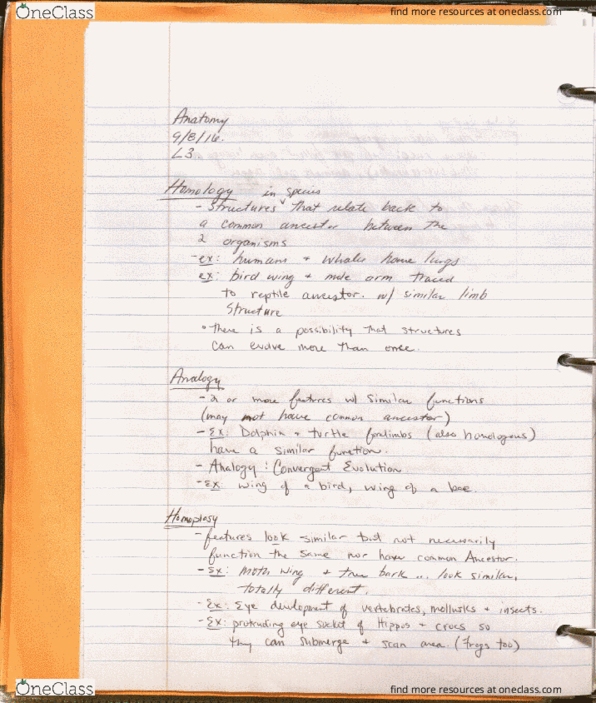 OneClass
find more resources at oneclass.com
Anatomy
9/8/16.
L3
Homology in species
- Structures that relate back to
a common ancestor between the
2 organisms
-ex: humans + whales have lungs
ex: bird wing + mole arm traced
to reptile ancestor. w/ similar limb
Structure
• There is a possibility that structures
can evolve more than once.
Analogy
- 2 or more features w/ similar functions
(may not have common ancestor)
- Ex: Dolphin + turtle forelimbs (also homologous)
have a similar function.
- Analogy: Convergent Evolution.
- Ex: wing of a bird, wing of a bee.
Homoplasy
- features look similar but not necessarily
function the same nor have common Ancestor.
- Ex: Moth wing + tree bark ... look similar,
totally different.
- Ex: Eye development of vertebrates, mollusks + insects.
- Ex: protruding eye socket of Hippos + crocs so
they can submerge + scan area. (frogs too)
OneClass
find more resources at oneclass.com